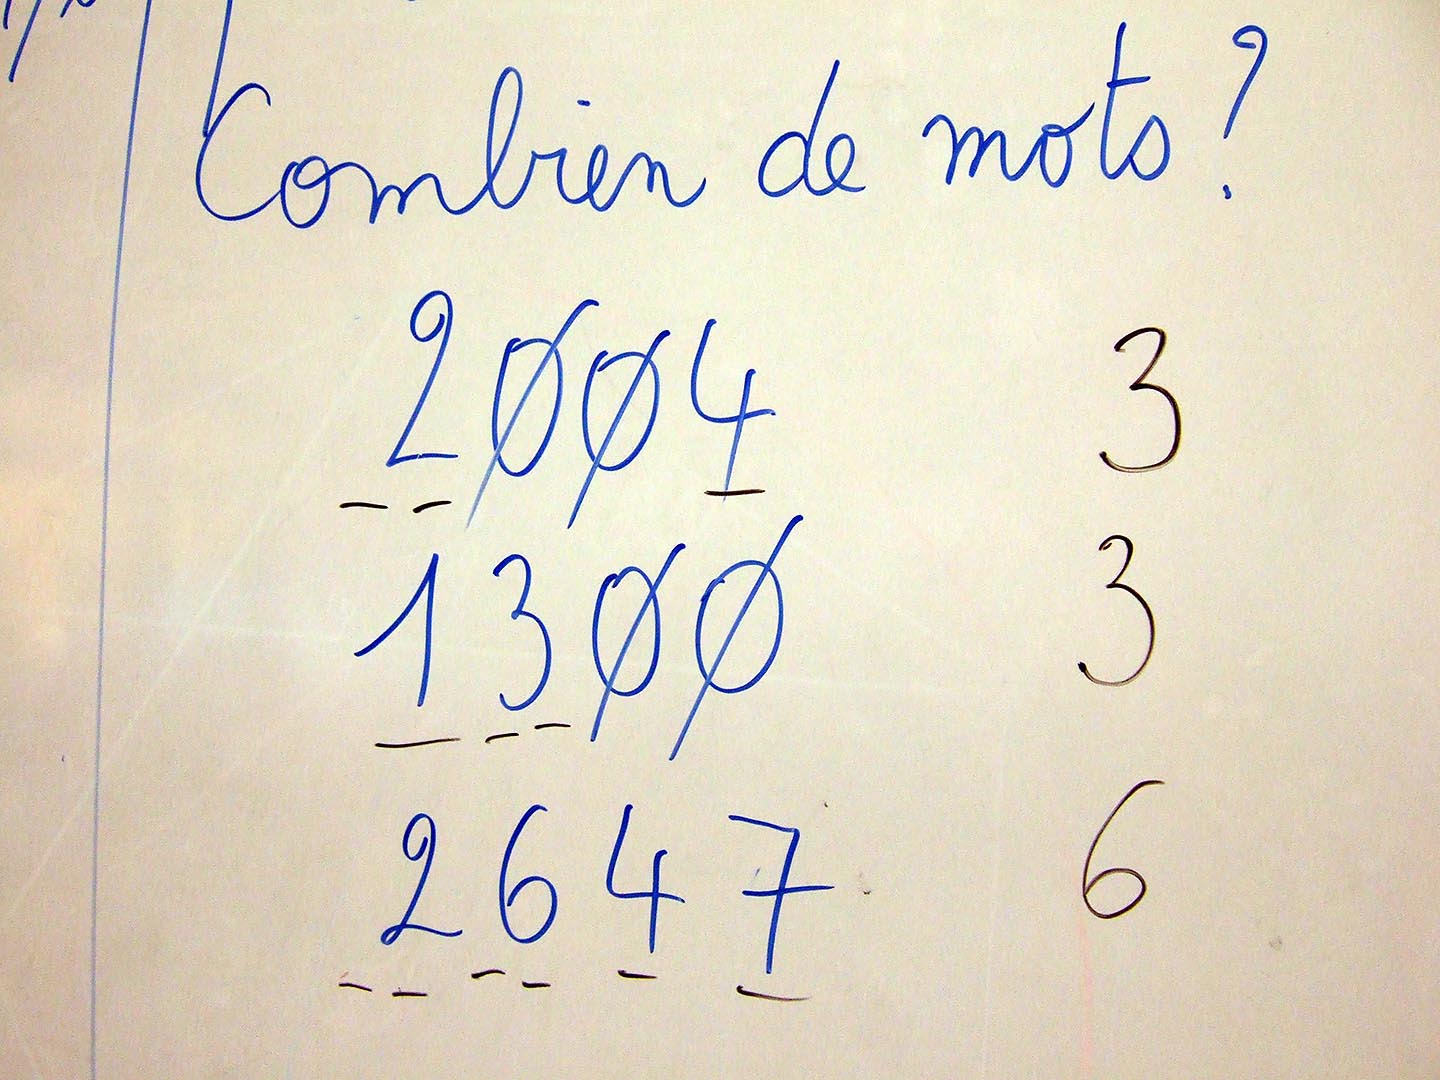 Combien de mots ?
2004 3
1300 3
2647 6